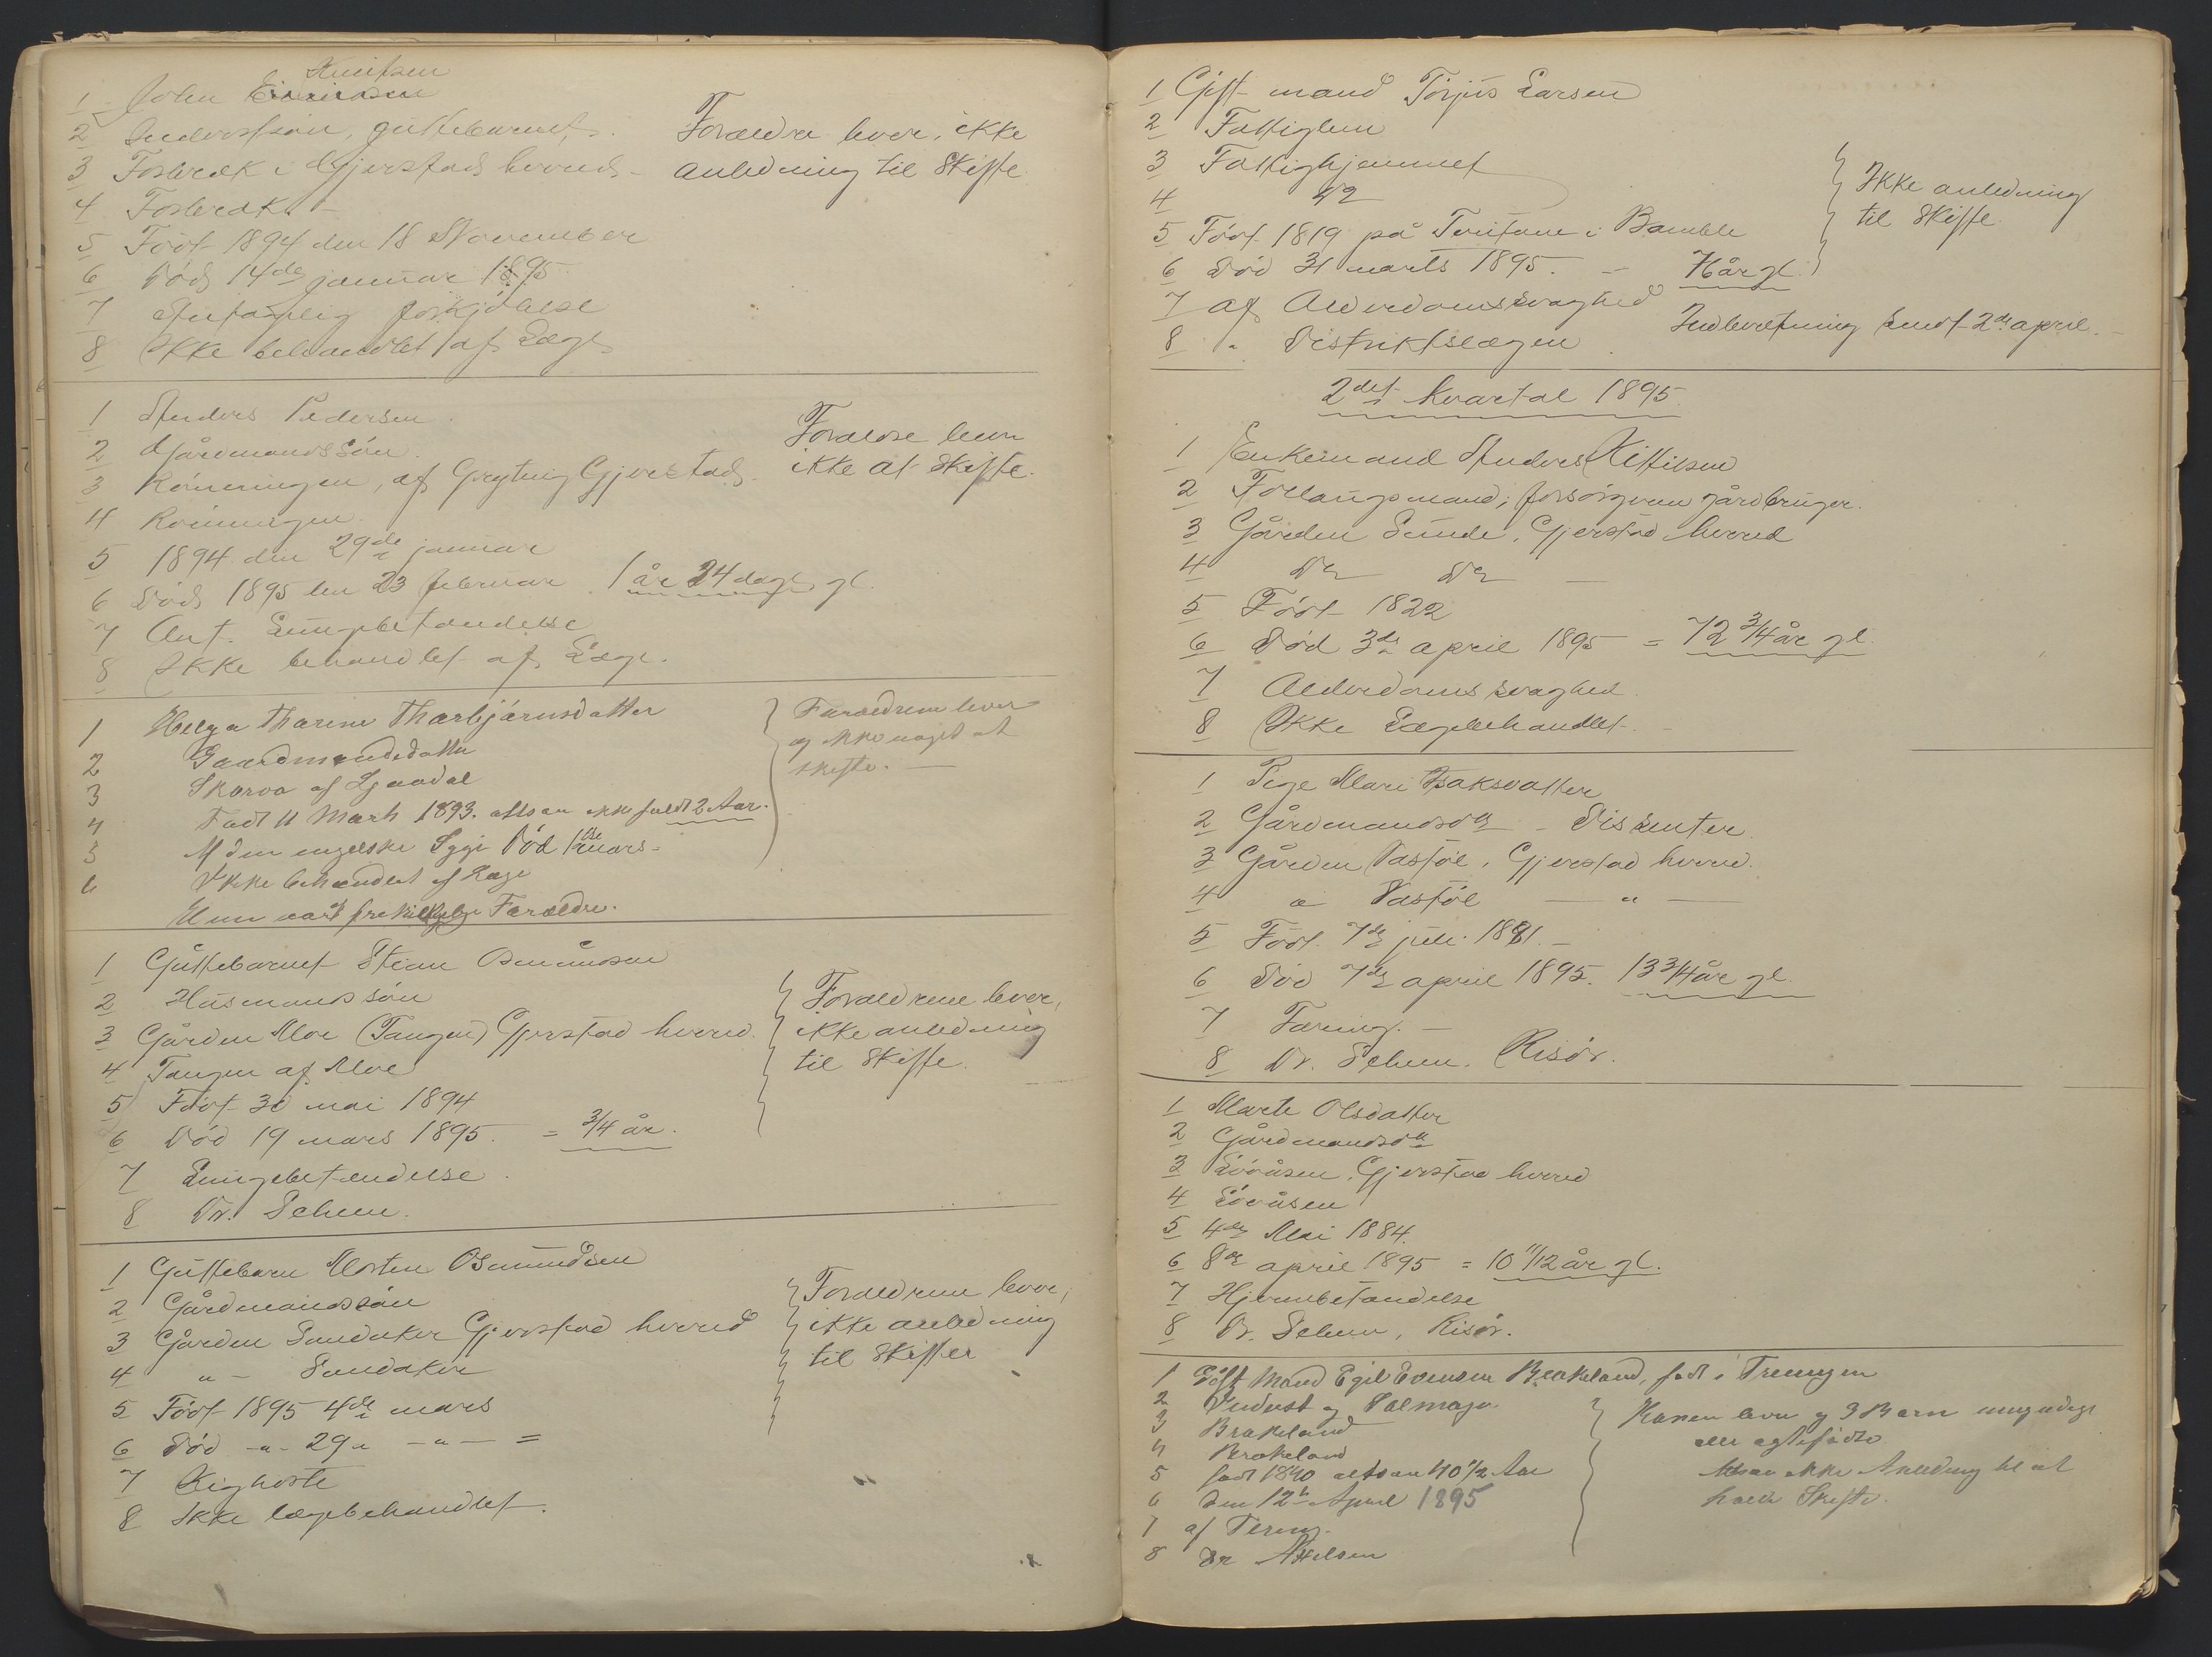 Knutsen
1 John
2 Inderstsøn, guttebarnet. Forældre lever, ikke
3 Fosbræk i Gjerstads herred - anledning til Skifte
4 Fosbræk -
5 Født 1894 den 18 November
6 Død 14de januar 1895
7 Antagelig forkjølelse
8 Ikke behandlet af Læge
1 Anders Pedersen
2 Gårdmandssøn. Forældre lever
3 Rönningen, af Gryting Gjerstad. ikke at skifte.
4 Rönningen
5 1894 den 29de januar
6 Død 1895 den 23 februar 1 år 24 dage gl.
7 Ant. Lungebetændelse
8 Ikke behandlet af Læge.
1 Helga Tharine Tharbjørnsdatter
2 Gaardmandsdatter
3 Skorva af
4 Født 11 Marts 1893. altsaa ikke fuldt 2 Aar.
5 Af den engelske Syge Død 1ste mars -
6 Ikke behandlet af Læge
Hun var Forældre.
Forældrene lever
og ikke noget at
skifte. -
1 Guttebarnet Stian Osmundsen
2 Husmandssøn
3 Gården Moe (Tangen) Gjerstad herred.
4 Tangen af Moe
5 Født 30 mai 1894
6 Død 19 mars 1895. = 3/4 år.
7 Lungebetændelse
8 Dr. Scheen.
Forældrene lever,
ikke anledning
til Skifte.
1 Guttebarn Morten Osmundsen
2 Gårdmandssøn
3 Gården Sandaker Gjerstad herred
4 " - Sandaker
5 Født 1895 4de mars
6 Død -"- 29 " -"- =
7 Kighoste
8 Ikke lægebehandlet.
Forældrene lever,
ikke anledning
til Skifter
1 Gift mand Torjus Larsen
2 Fattiglem
3 Fattighjemmet
4 Do
5 Født 1819 på i Bamble
6 Død 31 marts 1895. - 76 år gl.
7 af Alderdomssvaghed
8 " Distriktslægen
Ikke anledning
til Skifte
Indberetning sendt 2de april. -
2det Kvartal 1895.
1 Enkemand Anders Kittilsen
2 Föderaadsmand; forsörgeren gårdbruger.
3 Gården Sunde, Gjerstad herred
4 Do Do -
5 Født 1822
6 Død 3de april 1895 = 72 3/4 år gl.
7 Alderdomssvaghed
8 Ikke Lægebehandlet. -
1 Pige Mari Isaksdatter
2 Gårdmandsdtr - Dissenter
3 Gården Vastøl, Gjerstad herred.
4 " Vastøl - " -
5 Født 7de juli 1881. -
6 Død 7de april 1895. 13 3/4 år gl.
7 Tæring. -
8 Dr. Scheen. Risør.
1 Marte Olsdatter
2 Gårdmandsdtr
3 Løvåsen, Gjerstad herred
4 Løvåsen
5 4de Mai 1884.
6 8de april 1895 = 10 11/12 år gl.
7 Hjernebetændelse
8 Dr. Scheen, Risør.
1 Gift Mand Egil Evensen Brakeland, født i Treungen
2 Inderst og Salmager
3 Brakeland
4 Brakeland
5 født 1840 altsaa Aar
6 Den 12te April 1895
7 af Tering.
8 Dr
Konen lever og 3 Børn umyndige
alle ægtefødte
Altsaa ikke Anledning til at
holde Skifte.